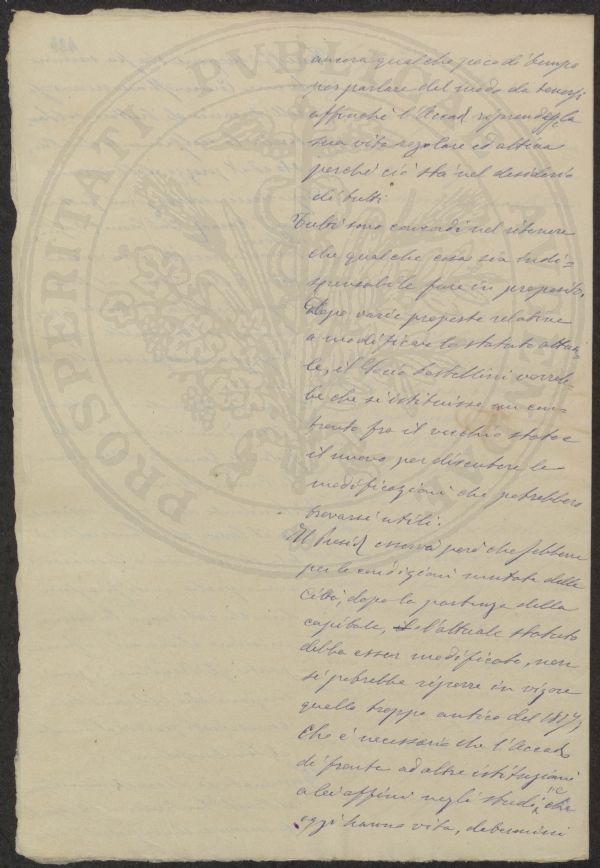 ancora qualche poco di tempo
per parlare del modo da tenersi
affinché l'Accad. riprendesse la
sua vita regolare ed attiva
perché ciò stà nel desiderio
di tutti.
Tutti sono concordi nel ritenere
che qualche cosa sia indi=
spensabile fare in proposito.
Dopo varie proposte relative
a modificare lo statuto attua=
le, il Socio Pestellini vorreb=
be che si istituisse un con=
fronto fra il vecchio stato e
il nuovo per discutere le
modificazioni che potrebbero
trovarsi utili.
Il Presid. osserva però che sebbene
per le condizioni mutate della
Città, dopo la partenza della
capitale, l'attuale statuto
debba esser modificato, non
si potrebbe riporre in vigore
quello troppo antico del 1817;
che è necessario che l'Accad.
di fronte ad altre istituzioni
a lei affini negli studi, che
oggi hanno vita, determini
PROSPERITATI PVBLICAE AVGENDAE